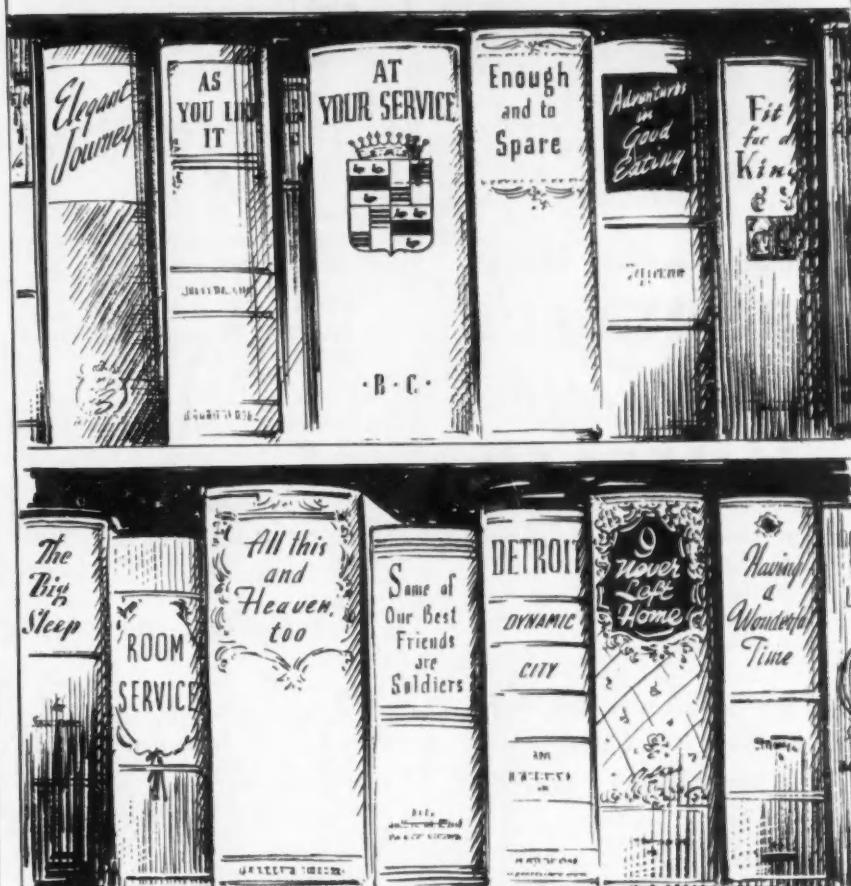 Elegant
Journey
AS
YOU LIKE
IT
AT
YOUR SERVICE
· B · C ·
Enough
and to
Spare
Adventures
in
Good
Eating
Fit
for a
King
The
Big
Sleep
ROOM
SERVICE
All this
and
Heaven,
too
Some of
Our Best
Friends
are
Soldiers
DETROIT
DYNAMIC
CITY
I
Never
Left
Home
Having
a
Wonderful
Time